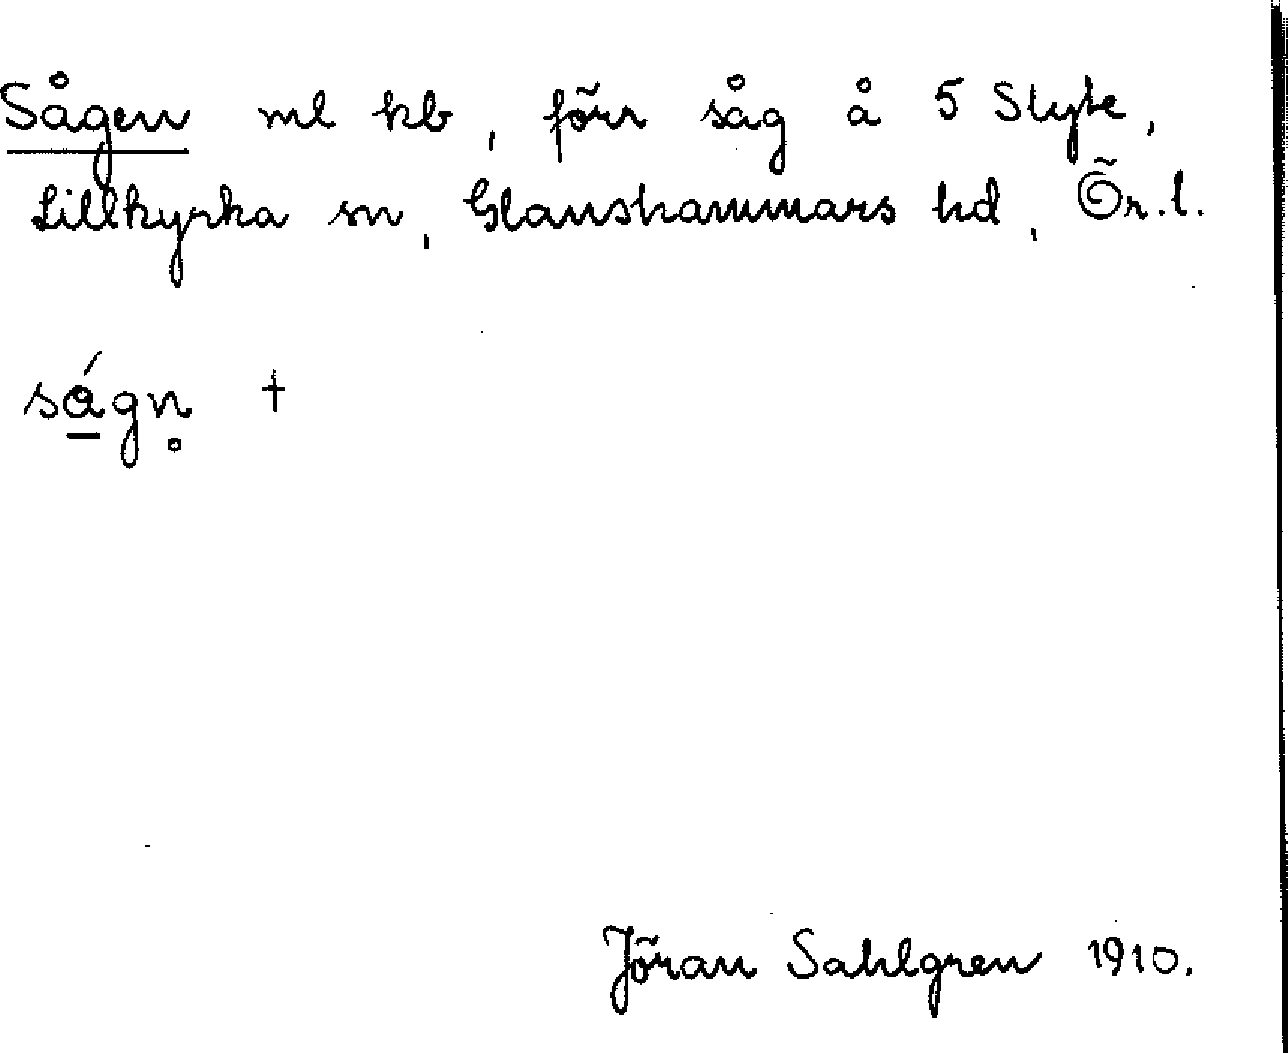 Sågen ml kb, förr såg å 5 Slyte,
Lillkyrka sn, Glanshammars hd, Ör.l.
ságn̥ †
Jöran Sahlgren 1910.